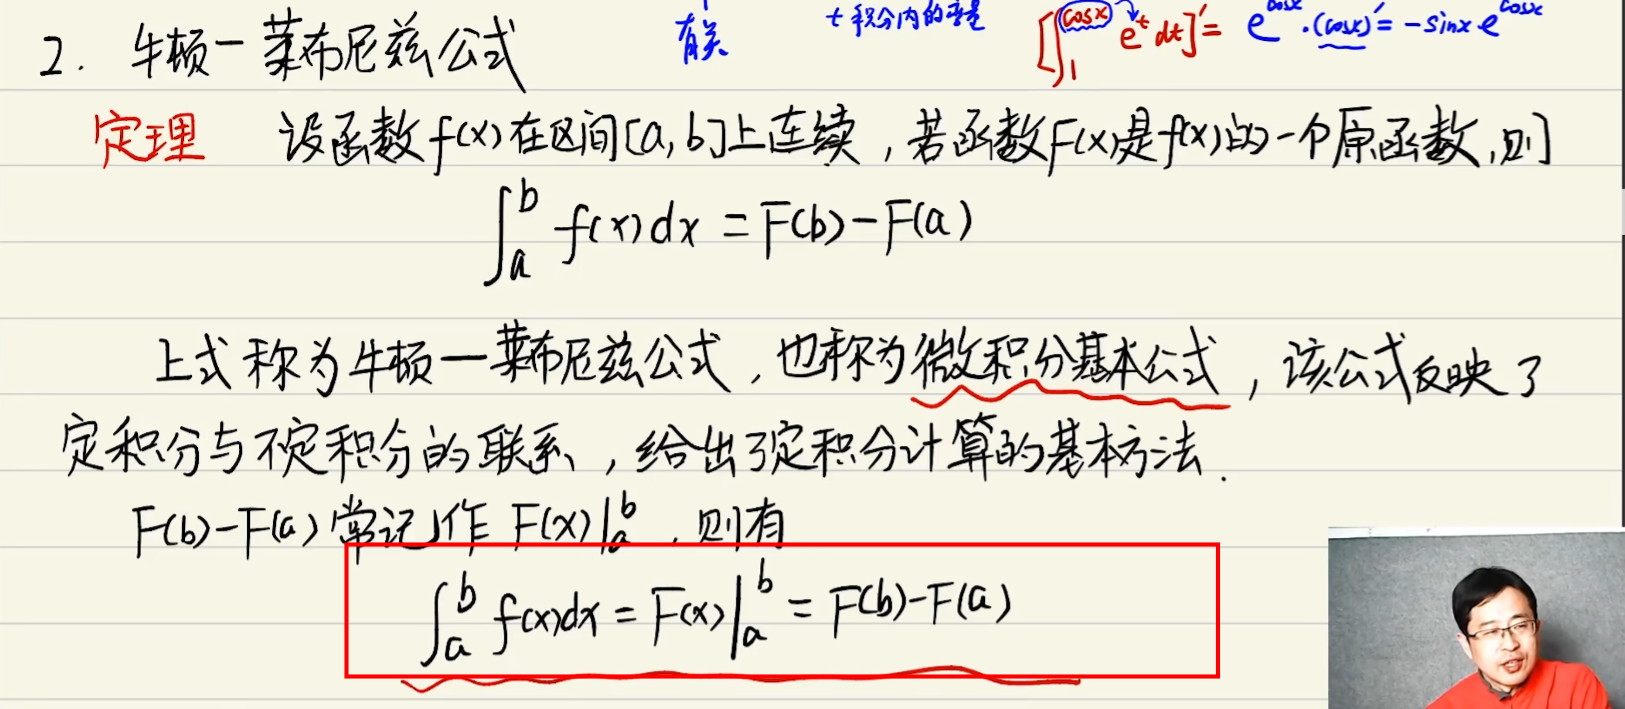 有关 t 积分内的变量 [∫₁^{cosx} e^t dt]′ = e^{cosx}·(cosx)′ = -sinx e^{cosx}
2. 牛顿一莱布尼兹公式
定理 设函数f(x)在区间[a,b]上连续,若函数F(x)是f(x)的一个原函数,则
∫_a^b f(x)dx = F(b)-F(a)
上式称为牛顿一莱布尼兹公式,也称为微积分基本公式,该公式反映了
定积分与不定积分的联系,给出了定积分计算的基本方法.
F(b)-F(a)常记作 F(x)|_a^b,则有
∫_a^b f(x)dx = F(x)|_a^b = F(b)-F(a)